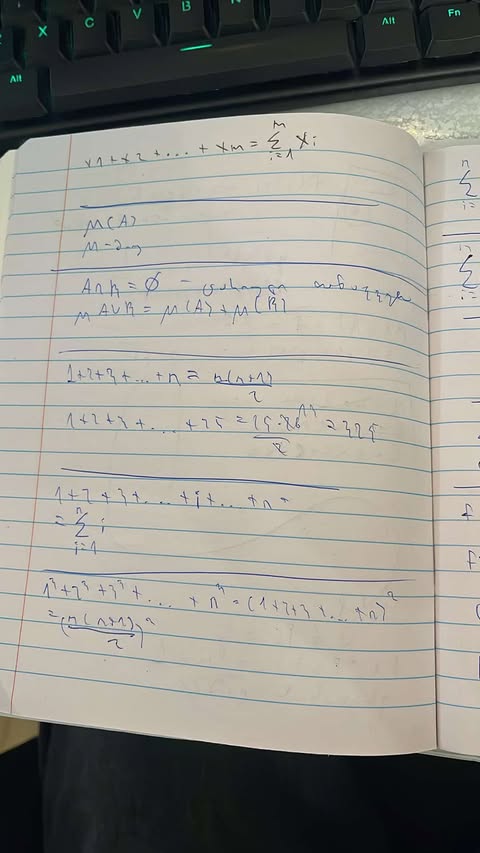 X
C
V
B
Alt
Fn
Alt
x1+x2+...+xm = ∑ i=1 m xi
μ(A)
A∩B = ∅ –
μ A∪B = μ(A) + μ(B)
1+2+3+...+n = n(n+1)/2
1+2+3+...+25 = 25·26 13/2 = 325
1+2+3+...+i+...+n =
= ∑ i=1 n i
1³+2³+3³+...+n³ = (1+2+3+...+n)²
= (n(n+1)/2)²
n
∑
i=
n
∑
i=
f
f